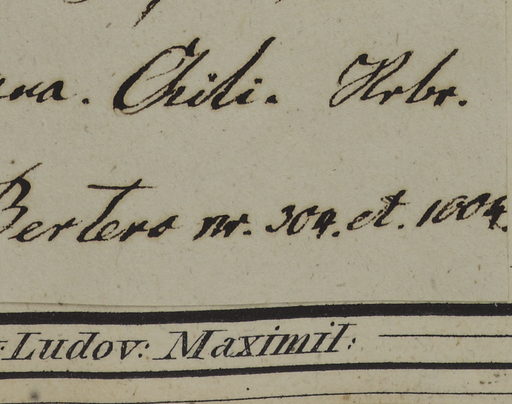 ana. Chili. Hrbr.
Bertero nr. 304. et. 1004.
Ludov: Maximil: